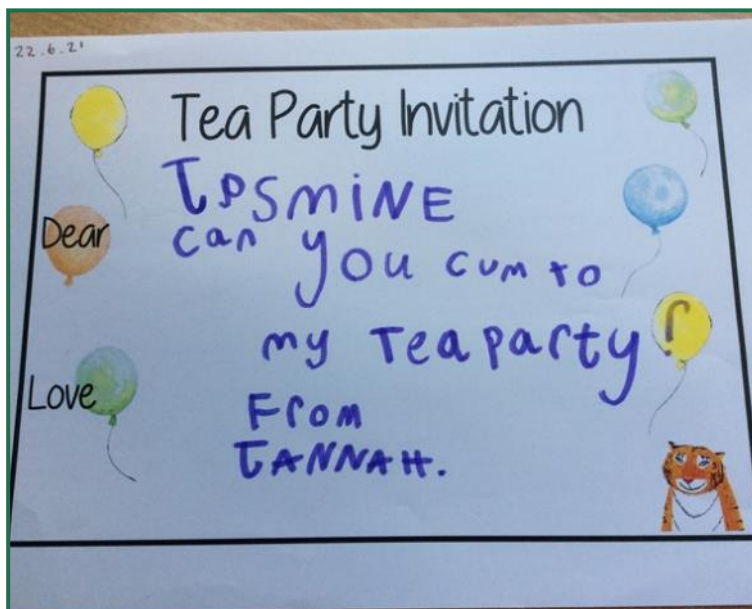 22.6.21
Tea Party Invitation
Dear
JASMiNE
can you cum to
my Teaparty?
Love
From
JANNAH.